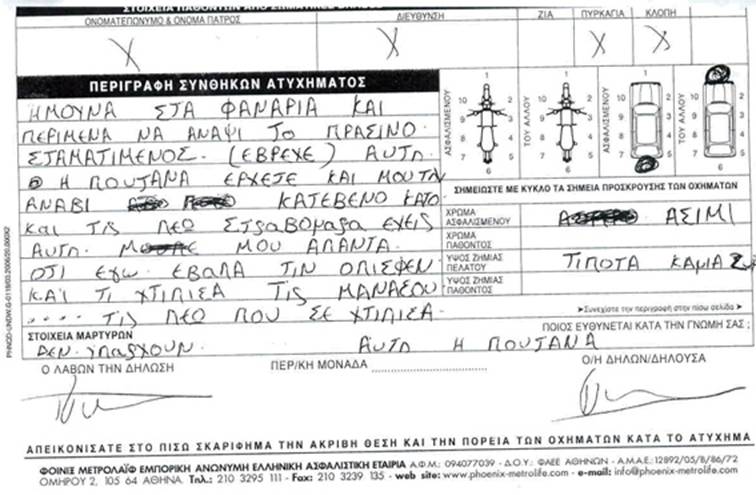 ΣΤΟΙΧΕΙΑ ΠΑΘΟΝΤΩΝ ΑΠΟ ΣΩΜΑΤΙΚΕΣ ΒΛΑΒΕΣ
ΟΝΟΜΑΤΕΠΩΝΥΜΟ & ΟΝΟΜΑ ΠΑΤΡΟΣ ΔΙΕΥΘΥΝΣΗ ΖΙΑ ΠΥΡΚΑΓΙΑ ΚΛΟΠΗ
Χ Χ Χ Χ
ΠΕΡΙΓΡΑΦΗ ΣΥΝΘΗΚΩΝ ΑΤΥΧΗΜΑΤΟΣ
ΗΜΟΥΝΑ ΣΤΑ ΦΑΝΑΡΙΑ ΚΑΙ
ΠΕΡΙΜΕΝΑ ΝΑ ΑΝΑΨΙ ΤΟ ΠΡΑΣΙΝΟ.
ΣΤΑΜΑΤΙΜΕΝΟΣ. (ΕΒΡΕΧΕ) ΑΥΤΗ
Η ΠΟΥΤΑΝΑ ΕΡΧΕΤΕ ΚΑΙ ΜΟΥ ΤΑ
ΑΝΑΒΙ ΚΑΤΕΒΕΝΟ ΚΑΤΟ
ΚΑΙ ΤΙΣ ΛΕΩ ΣΤραΒΟΜαρα ΕΧΕΙΣ
ΑΥΤΗ. ΜΟΥ ΑΠΑΝΤΑ
ΟΤΙ ΕΓω ΕΒΑΛΑ ΤΙΝ ΟΠΙΣΦΕΝ
ΚΑΙ ΤΙ ΧΤΙΠΙΣΑ ΤΙΣ ΜΑΝΑΣΟΥ
.... ΤΙΣ ΛΕΩ ΠΟΥ ΣΕ ΧΤΙΠΙΣΑ.
ΑΣΦΑΛΙΣΜΕΝΟΥ
1
10 2
9 3
8 4
7 5
6
ΤΟΥ ΑΛΛΟΥ
1
10 2
9 3
8 4
7 5
6
ΑΣΦΑΛΙΣΜΕΝΟΥ
1
10 2
9 3
8 4
7 5
ΤΟΥ ΑΛΛΟΥ
10 2
9 3
8 4
7 5
6
ΣΗΜΕΙΩΣΤΕ ΜΕ ΚΥΚΛΟ ΤΑ ΣΗΜΕΙΑ ΠΡΟΣΚΡΟΥΣΗΣ ΤΩΝ ΟΧΗΜΑΤΩΝ
ΧΡΩΜΑ ΑΣΦΑΛΙΣΜΕΝΟΥ ΑΣΙΜΙ
ΧΡΩΜΑ ΠΑΘΟΝΤΟΣ
ΥΨΟΣ ΖΗΜΙΑΣ ΠΕΛΑΤΟΥ ΤΙΠΟΤΑ ΚΑΜΙΑ
ΥΨΟΣ ΖΗΜΙΑΣ ΠΑΘΟΝΤΟΣ
➤Συνεχίστε την περιγραφή στην πίσω σελίδα➤
ΣΤΟΙΧΕΙΑ ΜΑΡΤΥΡΩΝ
ΔΕΝ ΥΠαρΧΟΥΝ.
ΠΟΙΟΣ ΕΥΘΥΝΕΤΑΙ ΚΑΤΑ ΤΗΝ ΓΝΩΜΗ ΣΑΣ;
ΑΥΤΗ Η ΠΟΥΤΑΝΑ
Ο ΛΑΒΩΝ ΤΗΝ ΔΗΛΩΣΗ ΠΕΡ/ΚΗ ΜΟΝΑΔΑ Ο/Η ΔΗΛΩΝ/ΔΗΛΟΥΣΑ
ΑΠΕΙΚΟΝΙΣΑΤΕ ΣΤΟ ΠΙΣΩ ΣΚΑΡΙΦΗΜΑ ΤΗΝ ΑΚΡΙΒΗ ΘΕΣΗ ΚΑΙ ΤΗΝ ΠΟΡΕΙΑ ΤΩΝ ΟΧΗΜΑΤΩΝ ΚΑΤΑ ΤΟ ΑΤΥΧΗΜΑ
ΦΟΙΝΙΞ ΜΕΤΡΟΛΑΪΦ ΕΜΠΟΡΙΚΗ ΑΝΩΝΥΜΗ ΕΛΛΗΝΙΚΗ ΑΣΦΑΛΙΣΤΙΚΗ ΕΤΑΙΡΙΑ Α.Φ.Μ.: 094077039 - Δ.Ο.Υ.: ΦΑΕΕ ΑΘΗΝΩΝ - Α.Μ.Α.Ε.: 12892/05/Β/86/72
ΟΜΗΡΟΥ 2, 105 64 ΑΘΗΝΑ. Τηλ.: 210 3295 111 - Fax: 210 3239 135 - web site: www.phoenix-metrolife.com - e-mail: info@phoenix-metrolife.com